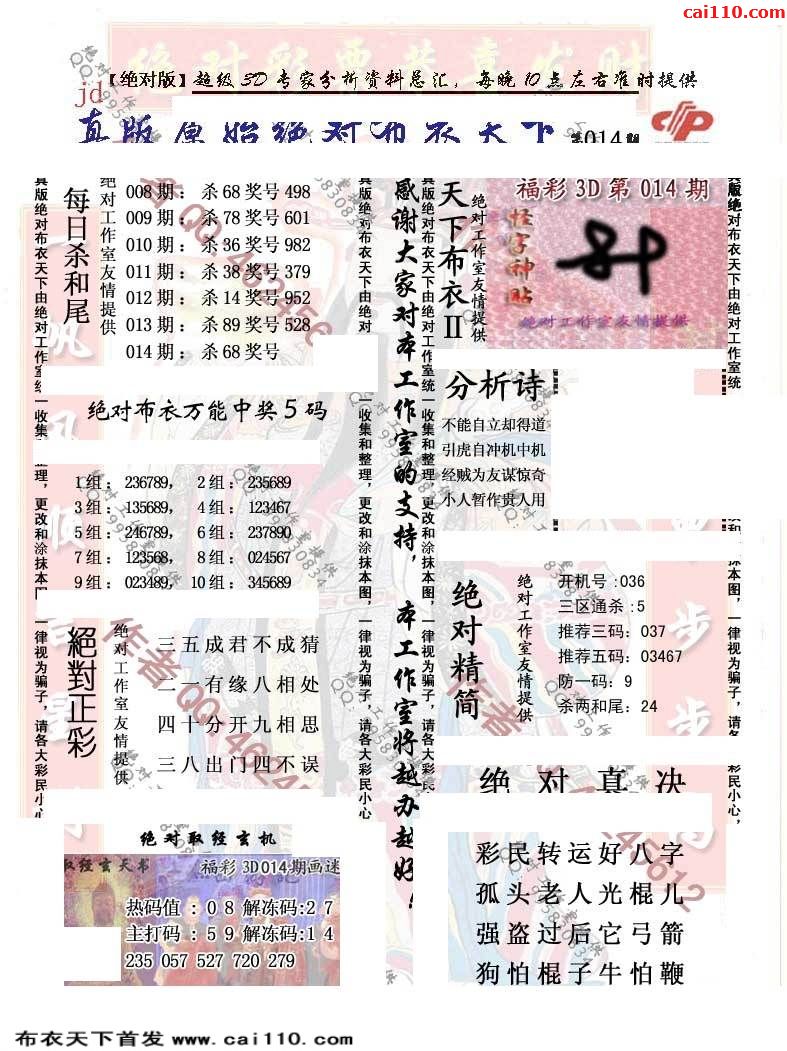 cai110.com
【绝对版】超级3D专家分析资料总汇，每晚10点左右准时提供
jd
真版原始绝对布衣天下 第014期
每日杀和尾
绝对工作室友情提供
008期：杀68奖号498
009期：杀78奖号601
010期：杀36奖号982
011期：杀38奖号379
012期：杀14奖号952
013期：杀89奖号528
014期：杀68奖号
绝对布衣万能中奖5码
1组：236789， 2组：235689
3组：135689， 4组：123467
5组：246789， 6组：237890
7组：123568， 8组：024567
9组：023489， 10组：345689
絕對正彩
绝对工作室友情提供
三五成君不成猜
二一有缘八相处
四十分开九相思
三八出门四不误
绝对取经玄机
取经玄天书
福彩3D014期画迷
热码值：08解冻码:27
主打码：59解冻码:14
235 057 527 720 279
真版绝对布衣天下由绝对工作室统一收集和整理，更改和涂抹本图，一律视为骗子，请各大彩民小心
感谢大家对本工作室的支持，本工作室将越办越好！
真版绝对布衣天下由绝对工作室统一收集和整理，更改和涂抹本图，一律视为骗子，请各大彩民
天下布衣II
绝对工作室友情提供
福彩3D第014期
怪字神贴
绝对工作室友情提供
分析诗
不能自立却得道
引虎自冲机中机
经贼为友谋惊奇
小人暂作贵人用
绝对精简
绝对工作室友情提供
开机号:036
三区通杀:5
推荐三码：037
推荐五码：03467
防一码：9
杀两和尾：24
绝对真决
彩民转运好八字
孤头老人光棍儿
强盗过后它弓箭
狗怕棍子牛怕鞭
布衣天下首发 www.cai110.com